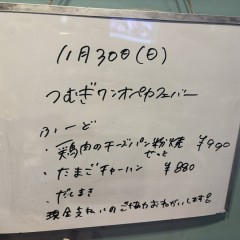 11月30日(日)
つむぎワンオペカフェバー
ふーど
・鶏肉のチーズパン粉焼 ¥990
せっと
・たまごチャーハン ¥880
・だしまき
現金支払いのご協力おねがいします!